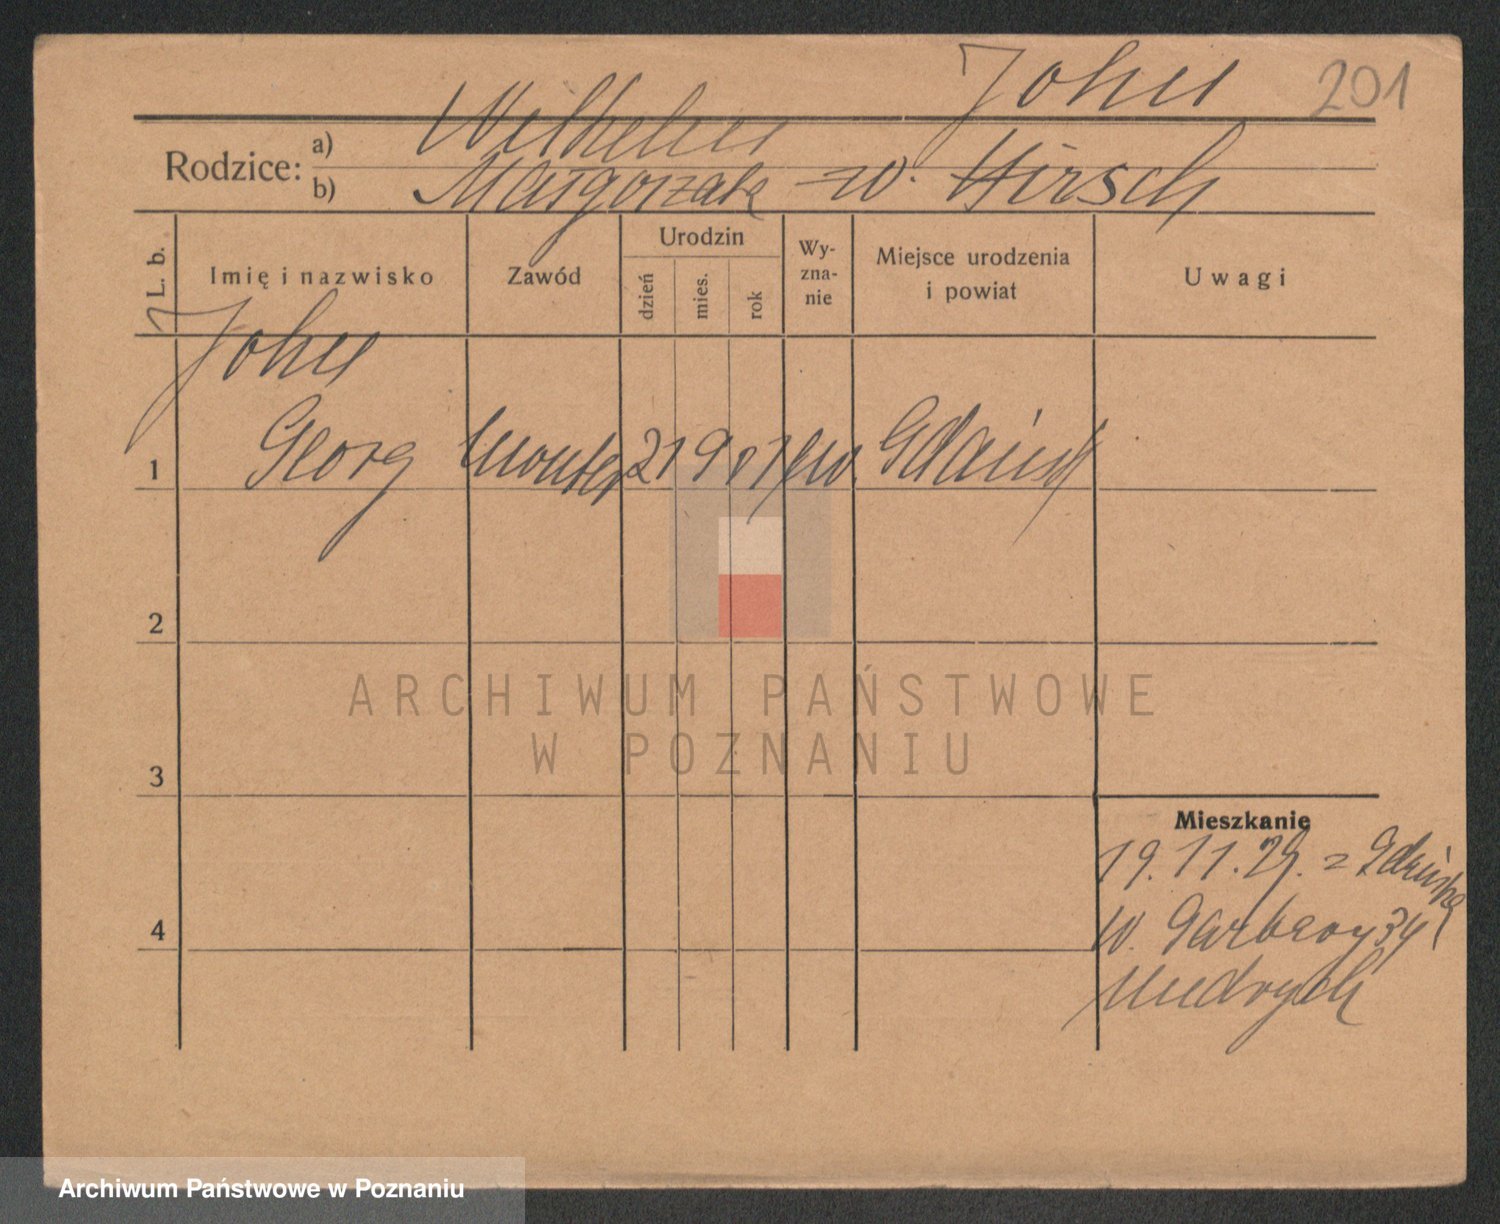 John 201
Wilhelm
Rodzice: a)
b) Małgorzata w. Hirsch
L. b. Imię i nazwisko Zawód Urodzin dzień mies. rok Wy-zna-nie Miejsce urodzenia i powiat Uwagi
John
1 Georg Monter 21 9 07 ew. Gdańsk
2
ARCHIWUM PAŃSTWOWE
W POZNANIU
3
Mieszkanie
19.11.29. z Gdańska
4 w. Garbary 34
Archiwum Państwowe w Poznaniu